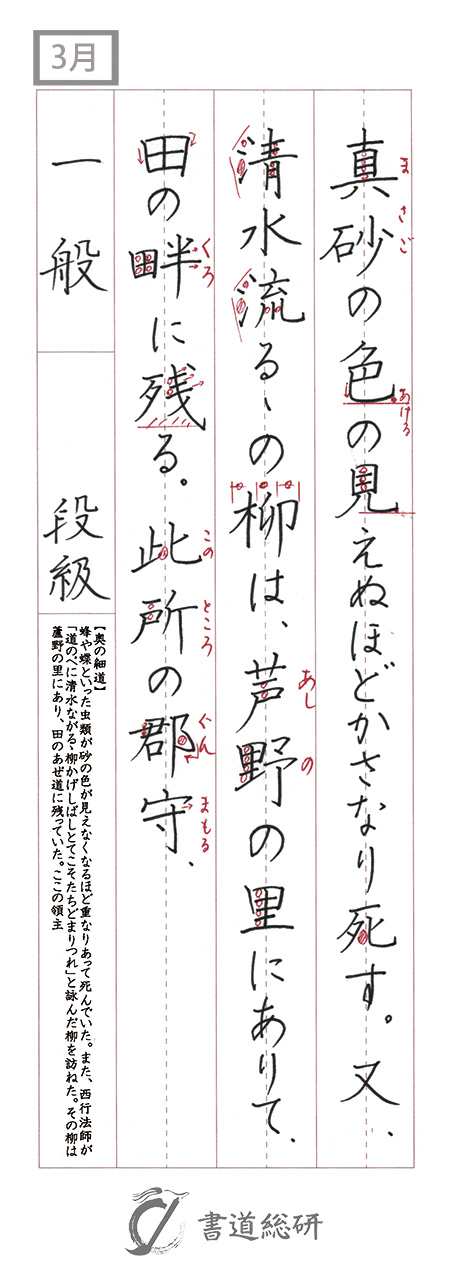 3月
真砂の色の見えぬほどかさなり死す。又、
まさご
あける
清水流るゝの柳は、芦野の里にありて、
あしの
田の畔に残る。此所の郡守、
くろ
このところ
ぐん
まもる
一般
段級
【奥の細道】
蜂や蝶といった虫類が砂の色が見えなくなるほど重なりあって死んでいた。また、西行法師が
「道のべに清水ながるゝ柳かげしばしとてこそたちどまりつれ」と詠んだ柳を訪ねた。その柳は
蘆野の里にあり、田のあぜ道に残っていた。ここの領主
書道総研